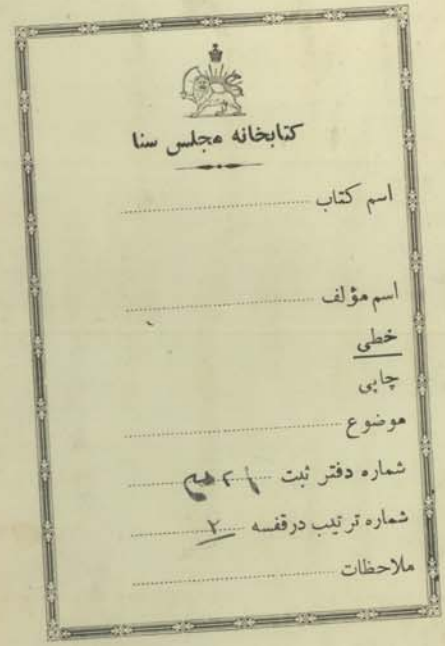 كتابخانه مجلس سنا
اسم كتاب
اسم مؤلف
خطی
چاپی
موضوع
شماره دفتر ثبت
شماره ترتیب درقفسه ۲
ملاحظات